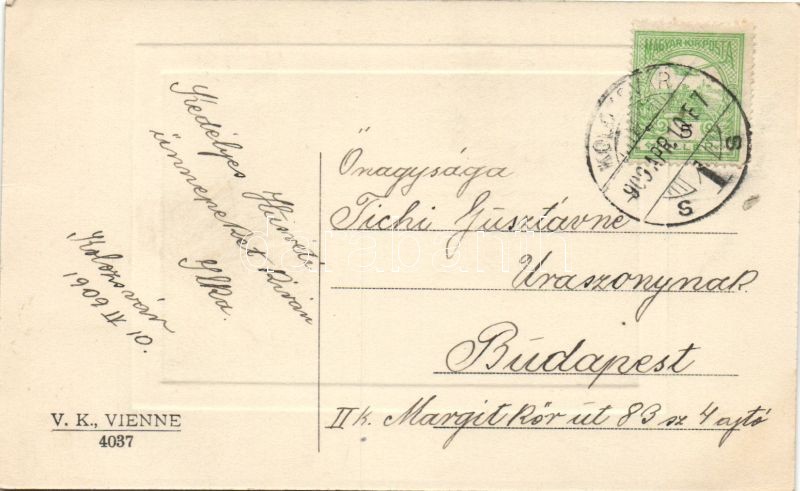 MAGYAR KIR. POSTA
KOLOZSVÁR
909 APR 10 E 7
S
1
S
Kedélyes Húsvéti
ünnepeket kíván
Ilka.
Kolozsvár
1909 IV 10.
Őnagysága
Tichi Gusztávné
Úraszonynak
Budapest
II k. Margit kör út 83 sz 4 ajtó
V. K., VIENNE
4037
darabanth